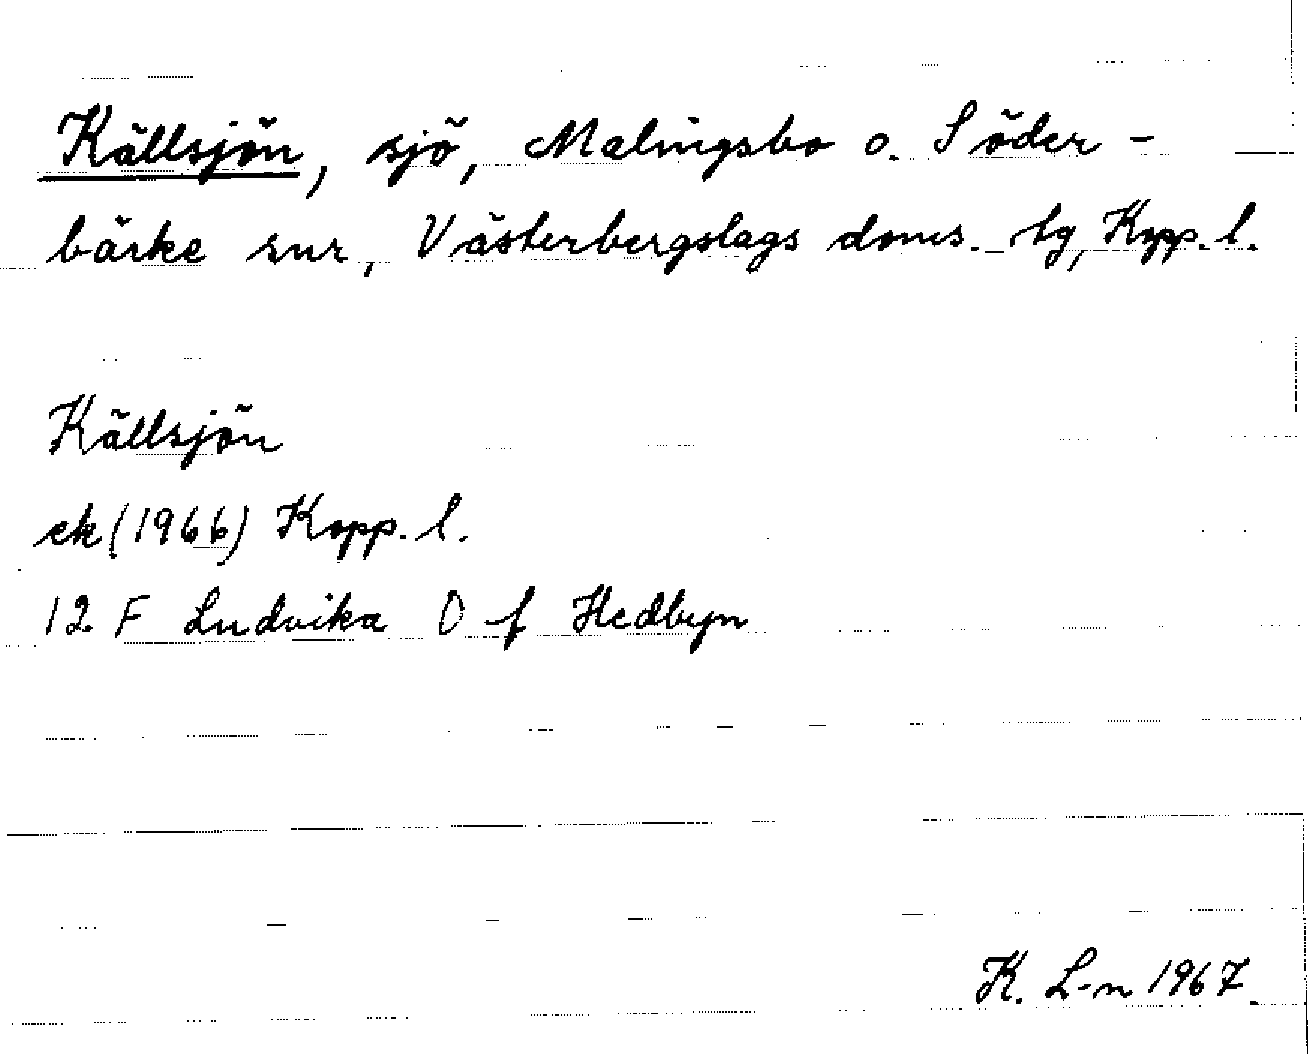 Källsjön, sjö, Malingsbo o. Söder-
bärke snr, Västerbergslags doms. tg, Kopp. l.
Källsjön
ek (1966) Kopp. l.
12 F Ludvika O f Hedbyn
K. L-n 1967